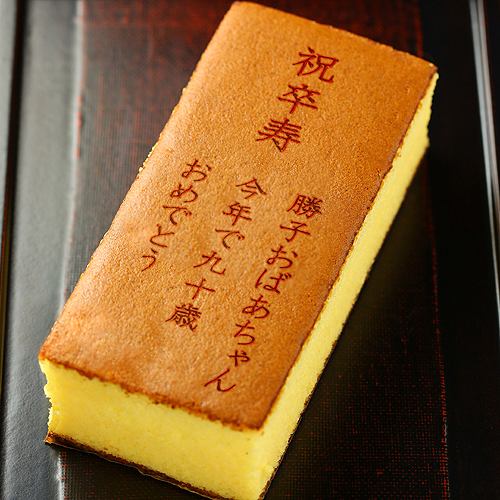 祝卒寿
勝子おばあちゃん
今年で九十歳
おめでとう